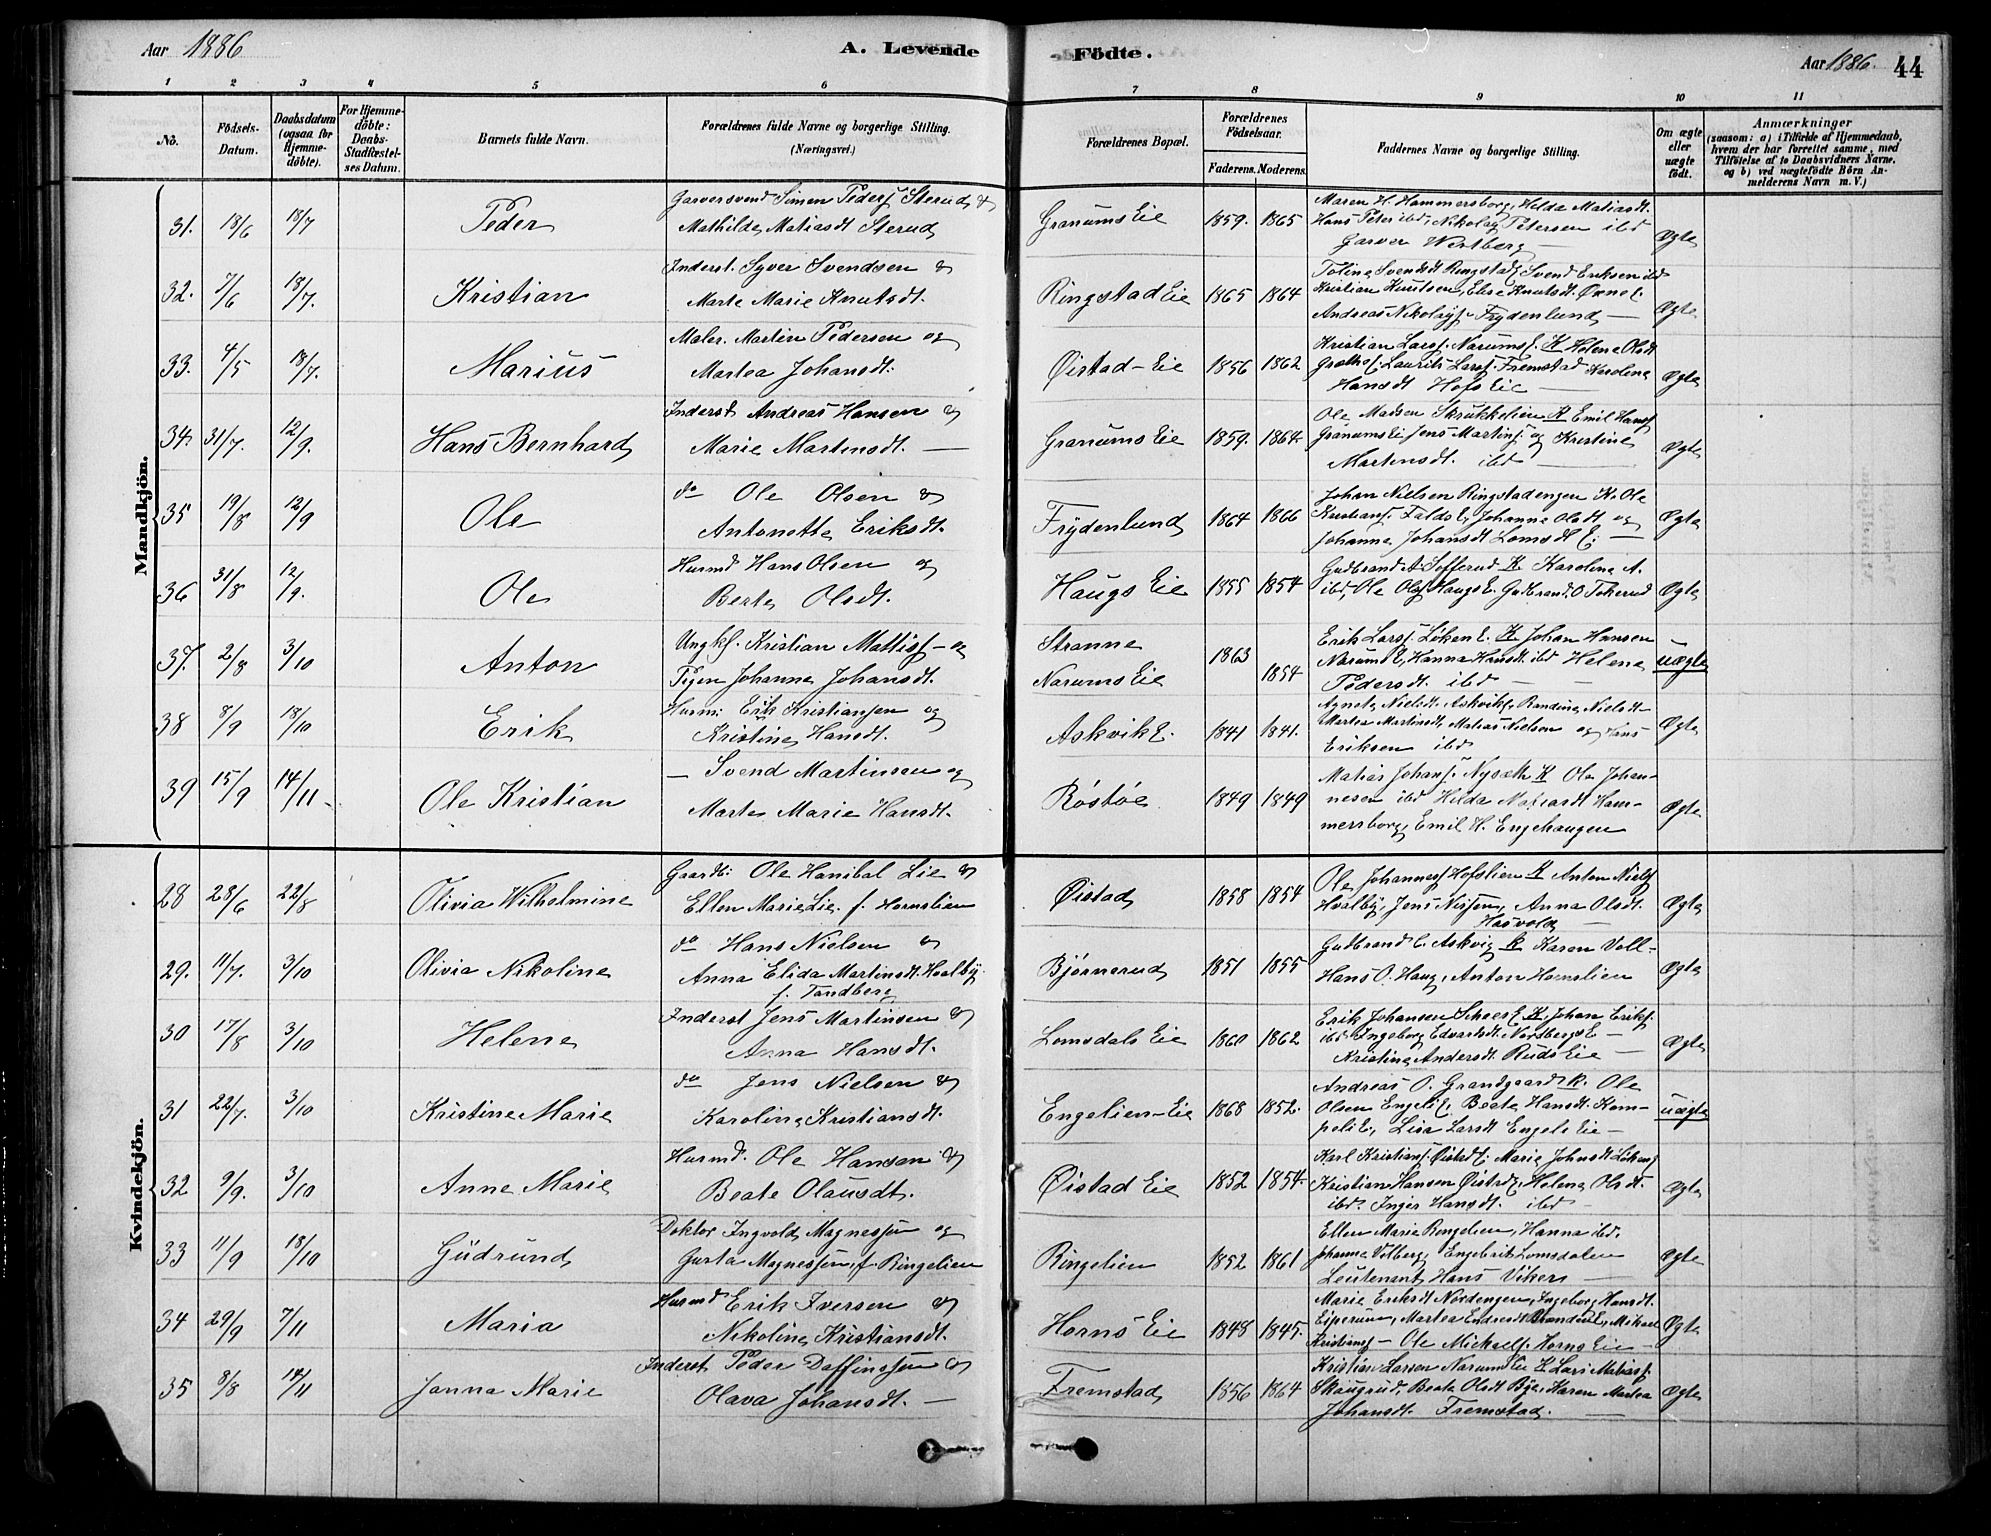 Aar 1886
A. Levende
Födte.
Aar 1886.
44
1 2 3 4 5 6 7 8 9 10 11
No.
Födsels-Datum.
Daabsdatum (ogsaa for Hjemme-döbte).
For Hjemme-döbte: Daabs-Stadfæstel-ses Datum.
Barnets fulde Navn.
Forældrenes fulde Navne og borgerlige Stilling.
(Næringsvei.)
Forældrenes Bopæl.
Forældrenes Födselsaar.
Faderens. Moderens.
Faddernes Navne og borgerlige Stilling.
Om ægte eller uægte født.
Anmærkninger
(saasom: a) i Tilfælde af Hjemmedaab,
hvem der har forrettet samme, med
Tilföielse af to Daabsvidners Navne,
og b) ved uægtefödte Börn An-
melderens Navn m. V.)
Mandkjön.
31. 13/6 18/7 Peder
Garversvend Simen Peders. Sterud &
Mathilde Matiasdt Sterud
Granums Eie 1859. 1865
Maren H. Hammersborg, Hilda Matiasdt.
Hans Peter ibd, Nikolay Petersen ibd
Garver Westberg —
Ægte
32. 7/6 18/7. Kristian
Inderst. Syver Svendsen &
Marte Marie Knutsdt.
Ringstad Eie 1865 1864
Toline Svendsdt Ringstad, Svend Eriksen ibd
Kristian Knutsen, Elise Knutsdt.
Andreas Nikolays. Frydenlund —
Ægte
33. 4/5 18/7. Marius
Maler. Martin Pedersen og
Martea Johansdt.
Øistad-Eie 1856 1862
Kristian Larss. Narums. K Helene Olsdt
Laurits Larss. Fremstad Karoline
Hansdt Hofs Eie —
Ægte
34. 31/7. 12/9. Hans Bernhard
Inderst Andreas Hansen &
Marie Martinsdt. —
Granums Eie 1859. 1864.
Ole Madsen Skrukkelien K Emil Hanss
Granums Ei Jens Martins. og Kristine
Martinsdt. ibd —
Ægte
35 19/8 12/9 Ole
do Ole Olsen &
Antonette Eriksdt.
Frydenlund 1864 1866
Johan Nielsen Ringstadengen K. Ole
Kristians. Falds E, Johanne Olsdt og
Johanne Johansdt Lomsdl E. —
Ægte
36 31/8 12/9. Ole
Husmd Hans Olsen og
Berte Olsdt.
Haugs Eie 1855 1854
Gudbrand A. Sofferud K Karoline A.
ibd, Ole Ols. Haugs E. Gudbrand O
Ægte
37. 2/8 3/10 Anton
Ungkf. Kristian Mattiss — og
Pigen Johanne Johansdt.
Stranne
Narums Eie 1863 1854
Erik Larss. Løken E. K Johan Hansen
Narum E, Hanna Hansdt. ibd Helene
Pedersdt. ibd —
uægte
38 8/9 18/10 Erik
Husm: Erik Kristiansen og
Kristine Hansdt.
Askvik E. 1841 1841.
Agnete Nielsdt. Askvik, Randine Nielsdt
Martea Martinsdt, Matias Nielsen og Hans
Eriksen ibd
Ægte
39 15/9 14/11. Ole Kristian
— Svend Martinsen og
Marte Marie Hansdt.
Røstøe 1849 1849
Matias Johans. Nysæth K Ole Johan-
nesen ibd Hilda Matiasdt Ham-
mersborg, Emil H. Engehaugen
Ægte
Kvindekjön.
28 28/6 22/8 Olivia Wilhelmine
Gaardb: Ole Hanibal Lie &
Ellen Marie Lie. f. Hornslien
Øistad 1858 1854
Ole Johanness Hofslien K Anton Niels
Hvalby, Jens Anna Olsdt.
Hasvold
Ægte
29. 11/7. 3/10 Olivia Nikoline
do Hans Nielsen &
Anna Elida Martinsdt. Hvalby.
f. Tandberg
Bjørnerud 1851 1855
Gudbrand C. Askvig K Karen Voll-
Hans O. Haug, Anton Hornslien
Ægte
30 17/8 3/10 Helene
Inderst Jens Martinsen &
Anna Hansdt.
Lomsdals Eie 1860 1862
Erik Johansen K. Johan Eriks.
ibd Ingeborg Edvardsdt. Nordbergs E —
Kristine Andersdt. Ruds Eie —
Ægte
31 22/7. 3/10 Kristine Marie
do Jens Nielsen &
Karoline Kristiansdt.
Engelien-Eie 1868 1852.
Andreas O. Grandgaard K. Ole
Olsen Engeli E. Beate Hansdt. Kom-
peli E, Lisa Larsdt Engeli Eie —
uægte
32 9/9. 3/10 Anne Marie
Husmd. Ole Hansen &
Beate Olausdt.
Øistad Eie 1852 1854.
Karl Kristians. Øistad E. Marie Johnsdt
Kristian Hansen Øistad, Helene Olsdt.
ibd. Inger Hansdt. ibd —
Ægte
33 11/9 18/10 Gudrund
Doktor Ingvold Magnessen og
Gusta Magnessen, f. Ringelien
Ringelien 1852 1861
Ellen Marie Ringelien, Hanna ibd.
Johanne Volberg, Engebrik Lomsdalen
Leutenant Hans Viker —
Ægte
34 29/9 7/11 Maria
Husmd Erik Iversen &
Nikoline Kristiansdt.
Horns Eie 1848 1845.
Marie Eriksdt Nordengen, Ingeborg Hansdt.
Martea Endresdt Mikael
Kristians — Ole Michaels. Horns Eie —
Ægte
35 8/8 14/11 Janna Marie
Inderst Peder Daffinssen &
Olava Johansdt. —
Fremstad 1856 1864
Kristian Larsen Narums Eie K Lars Matias.
Skaugrud, Beate Olsdt Bye, Karen Martea
Johansdt. Fremstad. —
Ægte